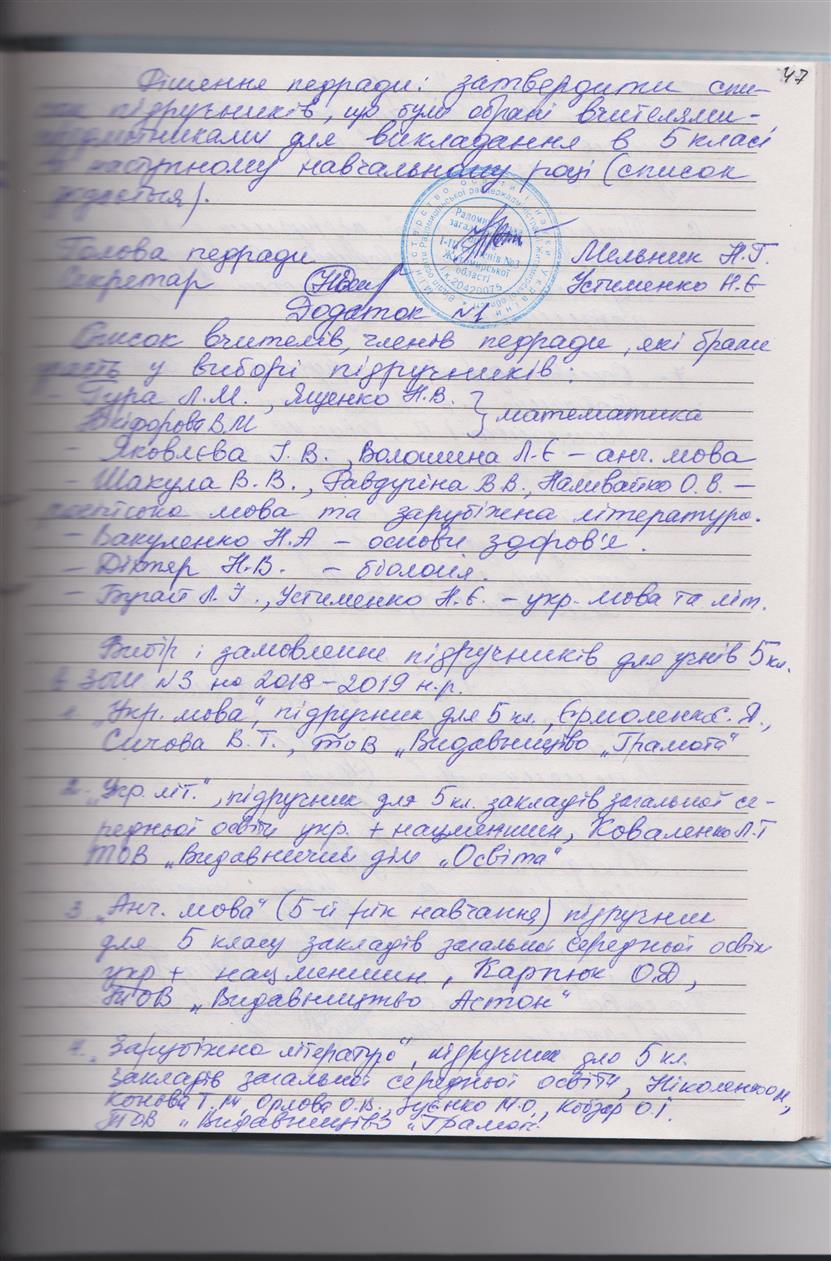 47
Рішення педради: затвердити спи-
сок підручників, що були обрані вчителями-
предметниками для викладання в 5 класі
в наступному навчальному році (список
додається).
Голова педради Мельник Н.Г.
Секретар Устименко Н.Є
Додаток №1
Список вчителів, членів педради, які брали
участь у виборі підручників:
- Гура Л.М., Ященко Н.В. } математика
Нікіфорова В.М
- Яковлєва І.В., Волошина Л.Є – анг. мова
- Шакула В.В., Равдугіна В.В., Наливайко О.В. –
російська мова та зарубіжна література.
- Вакуленко Н.А – основи здоров'я.
- Діхтер Н.В. – біологія.
- Бугаєт Л.І., Устименко Н.Є. – укр. мова та літ.
Вибір і замовлення підручників для учнів 5 кл.
в ЗОШ №3 на 2018–2019 н.р.
1. „Укр. мова", підручник для 5 кл., Єрмоленко С.Я.,
Сичова В.Т., ТОВ „Видавництво „Грамота"
2. „Укр. літ.", підручник для 5 кл. закладів загальної се-
редньої освіти укр. + нацменшин, Коваленко Л.Т
ТОВ „Видавничий дім „Освіта"
3 „Анг. мова" (5-й рік навчання) підручник
для 5 класу закладів загальної середньої освіти
укр + нацменшин, Карпюк О.Д,
ТОВ „Видавництво Астон"
4. „Зарубіжна література", підручник для 5 кл.
закладів загальної середньої освіти, Ніколенко О.М,
Конєва Т.М, Орлова О.В., Зуєнко М.О., Кобзар О.І.
ТОВ „Видавництво „Грамота"